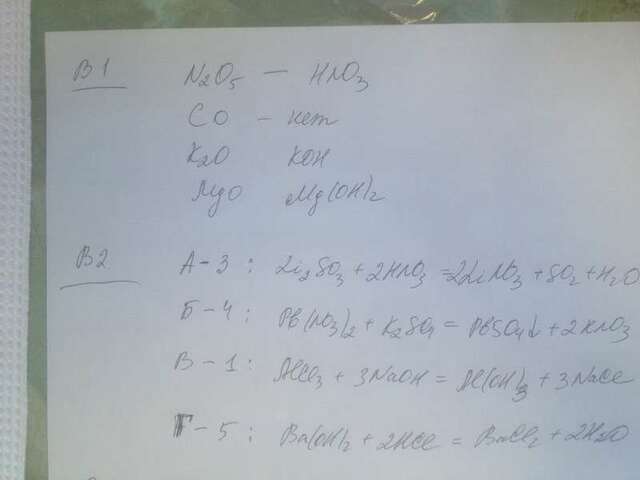 B1
N2O5 — HNO3
CO — нет
K2O KOH
MgO Mg(OH)2
B2
А-3: Li2SO3 + 2HNO3 = 2LiNO3 + SO2 + H2O
Б-4: Pb(NO3)2 + K2SO4 = PbSO4↓ + 2KNO3
В-1: AlCl3 + 3NaOH = Al(OH)3 + 3NaCl
Г-5: Ba(OH)2 + 2HCl = BaCl2 + 2H2O